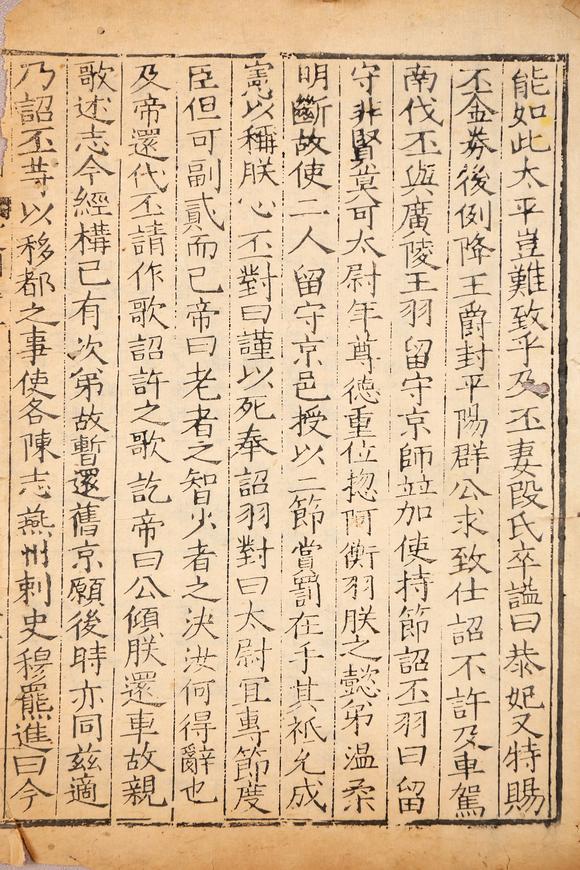 能如此太平豈難致乎及丕妻段氏卒謚曰恭妃又特賜
丕金券後例降王爵封平陽群公求致仕詔不許及車駕
南伐丕與廣陵王羽留守京師並加使持節詔丕羽曰留
守非賢莫可太尉年尊德重位揔阿衡羽朕之懿弟温柔
明斷故使二人留守京邑授以二節賞罰在手其祇允成
憲以稱朕心丕對曰謹以死奉詔羽對曰太尉冝專節度
臣但可副貳而已帝曰老者之智少者之决汝何得辭也
及帝還代丕請作歌詔許之歌訖帝曰公傾朕還車故親
歌述志今經構已有次弟故暫還舊京願後時亦同兹適
乃詔丕等以移都之事使各陳志燕州刺史穆羆進曰今